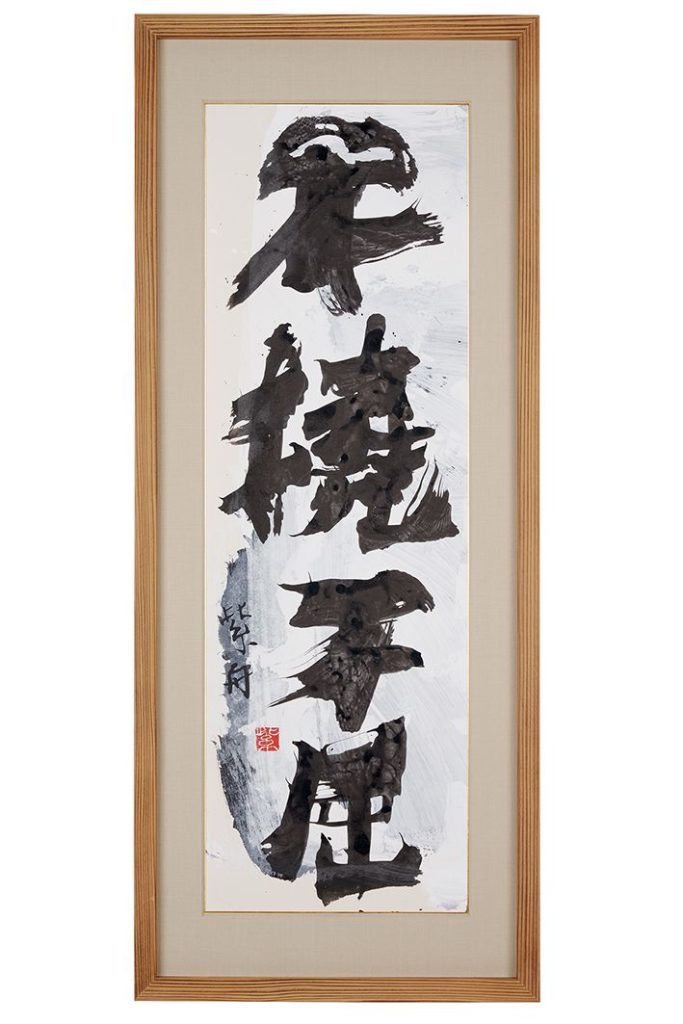 不撓不屈
紫舟
紫